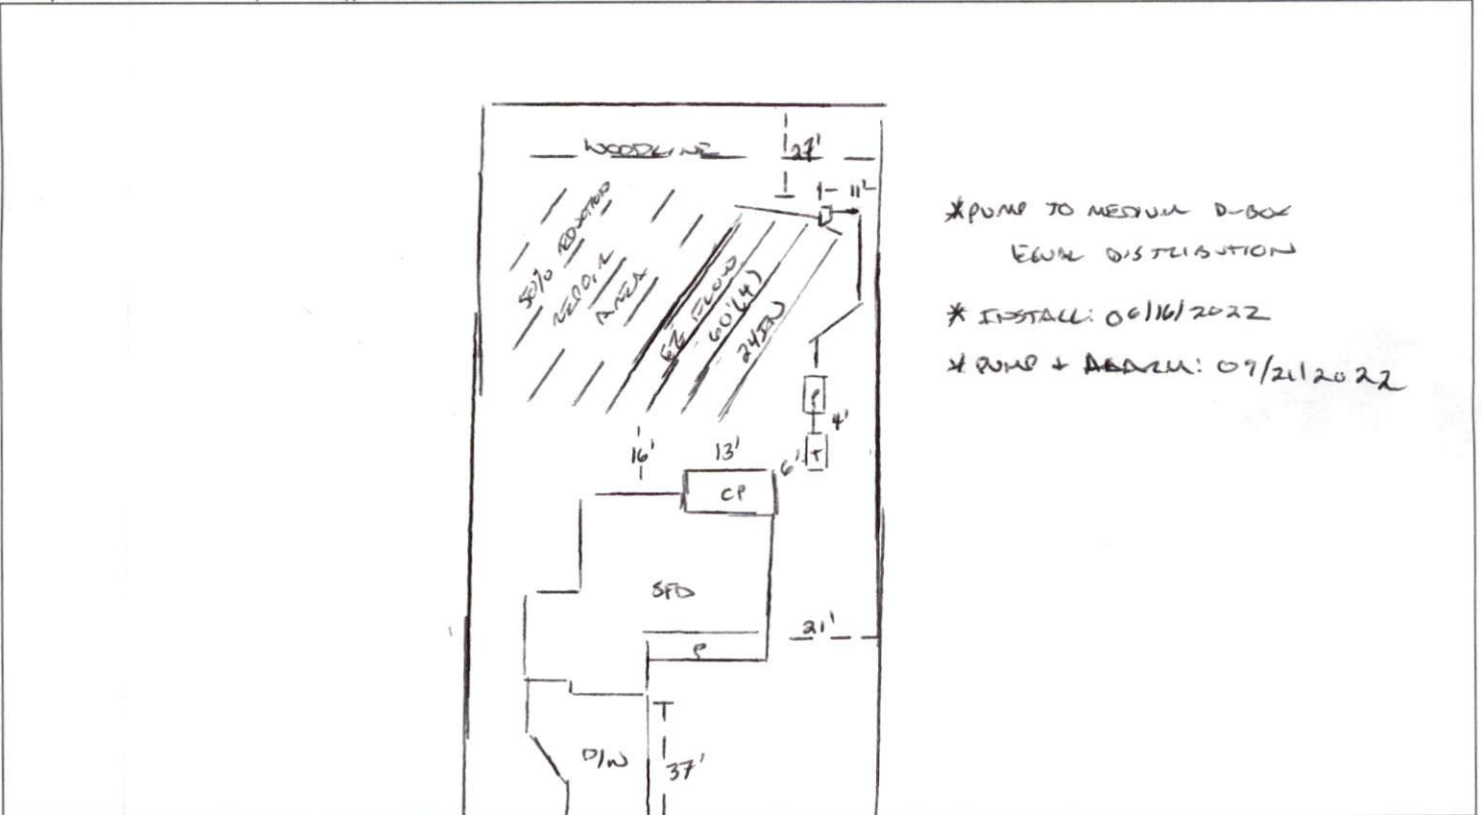 WOODLINE
27'
11'
50% REDUCTION
REPAIR
AREA
EZ FLOW
60'(4)
24IN
P
4'
T
6'
16'
13'
CP
SFD
P
21'
D/W
37'
*PUMP TO MEDIUM D-BOX
EQUAL DISTRIBUTION
* INSTALL: 06/16/2022
* PUMP + ALARM: 09/21/2022